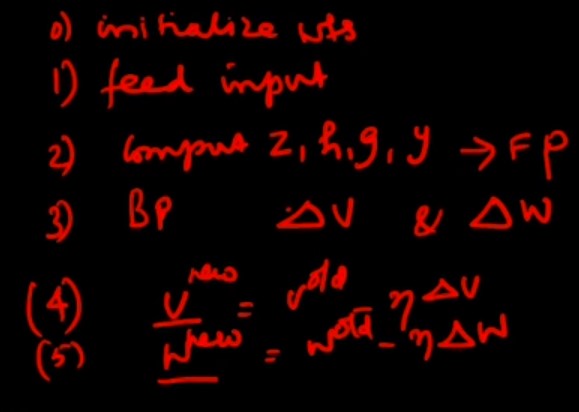 0) initialize wts
1) feed input
2) compute z, h, g, y → FP
3) BP ΔV & ΔW
(4) V^new = V^old - η ΔV
(5) W^new = W^old - η ΔW